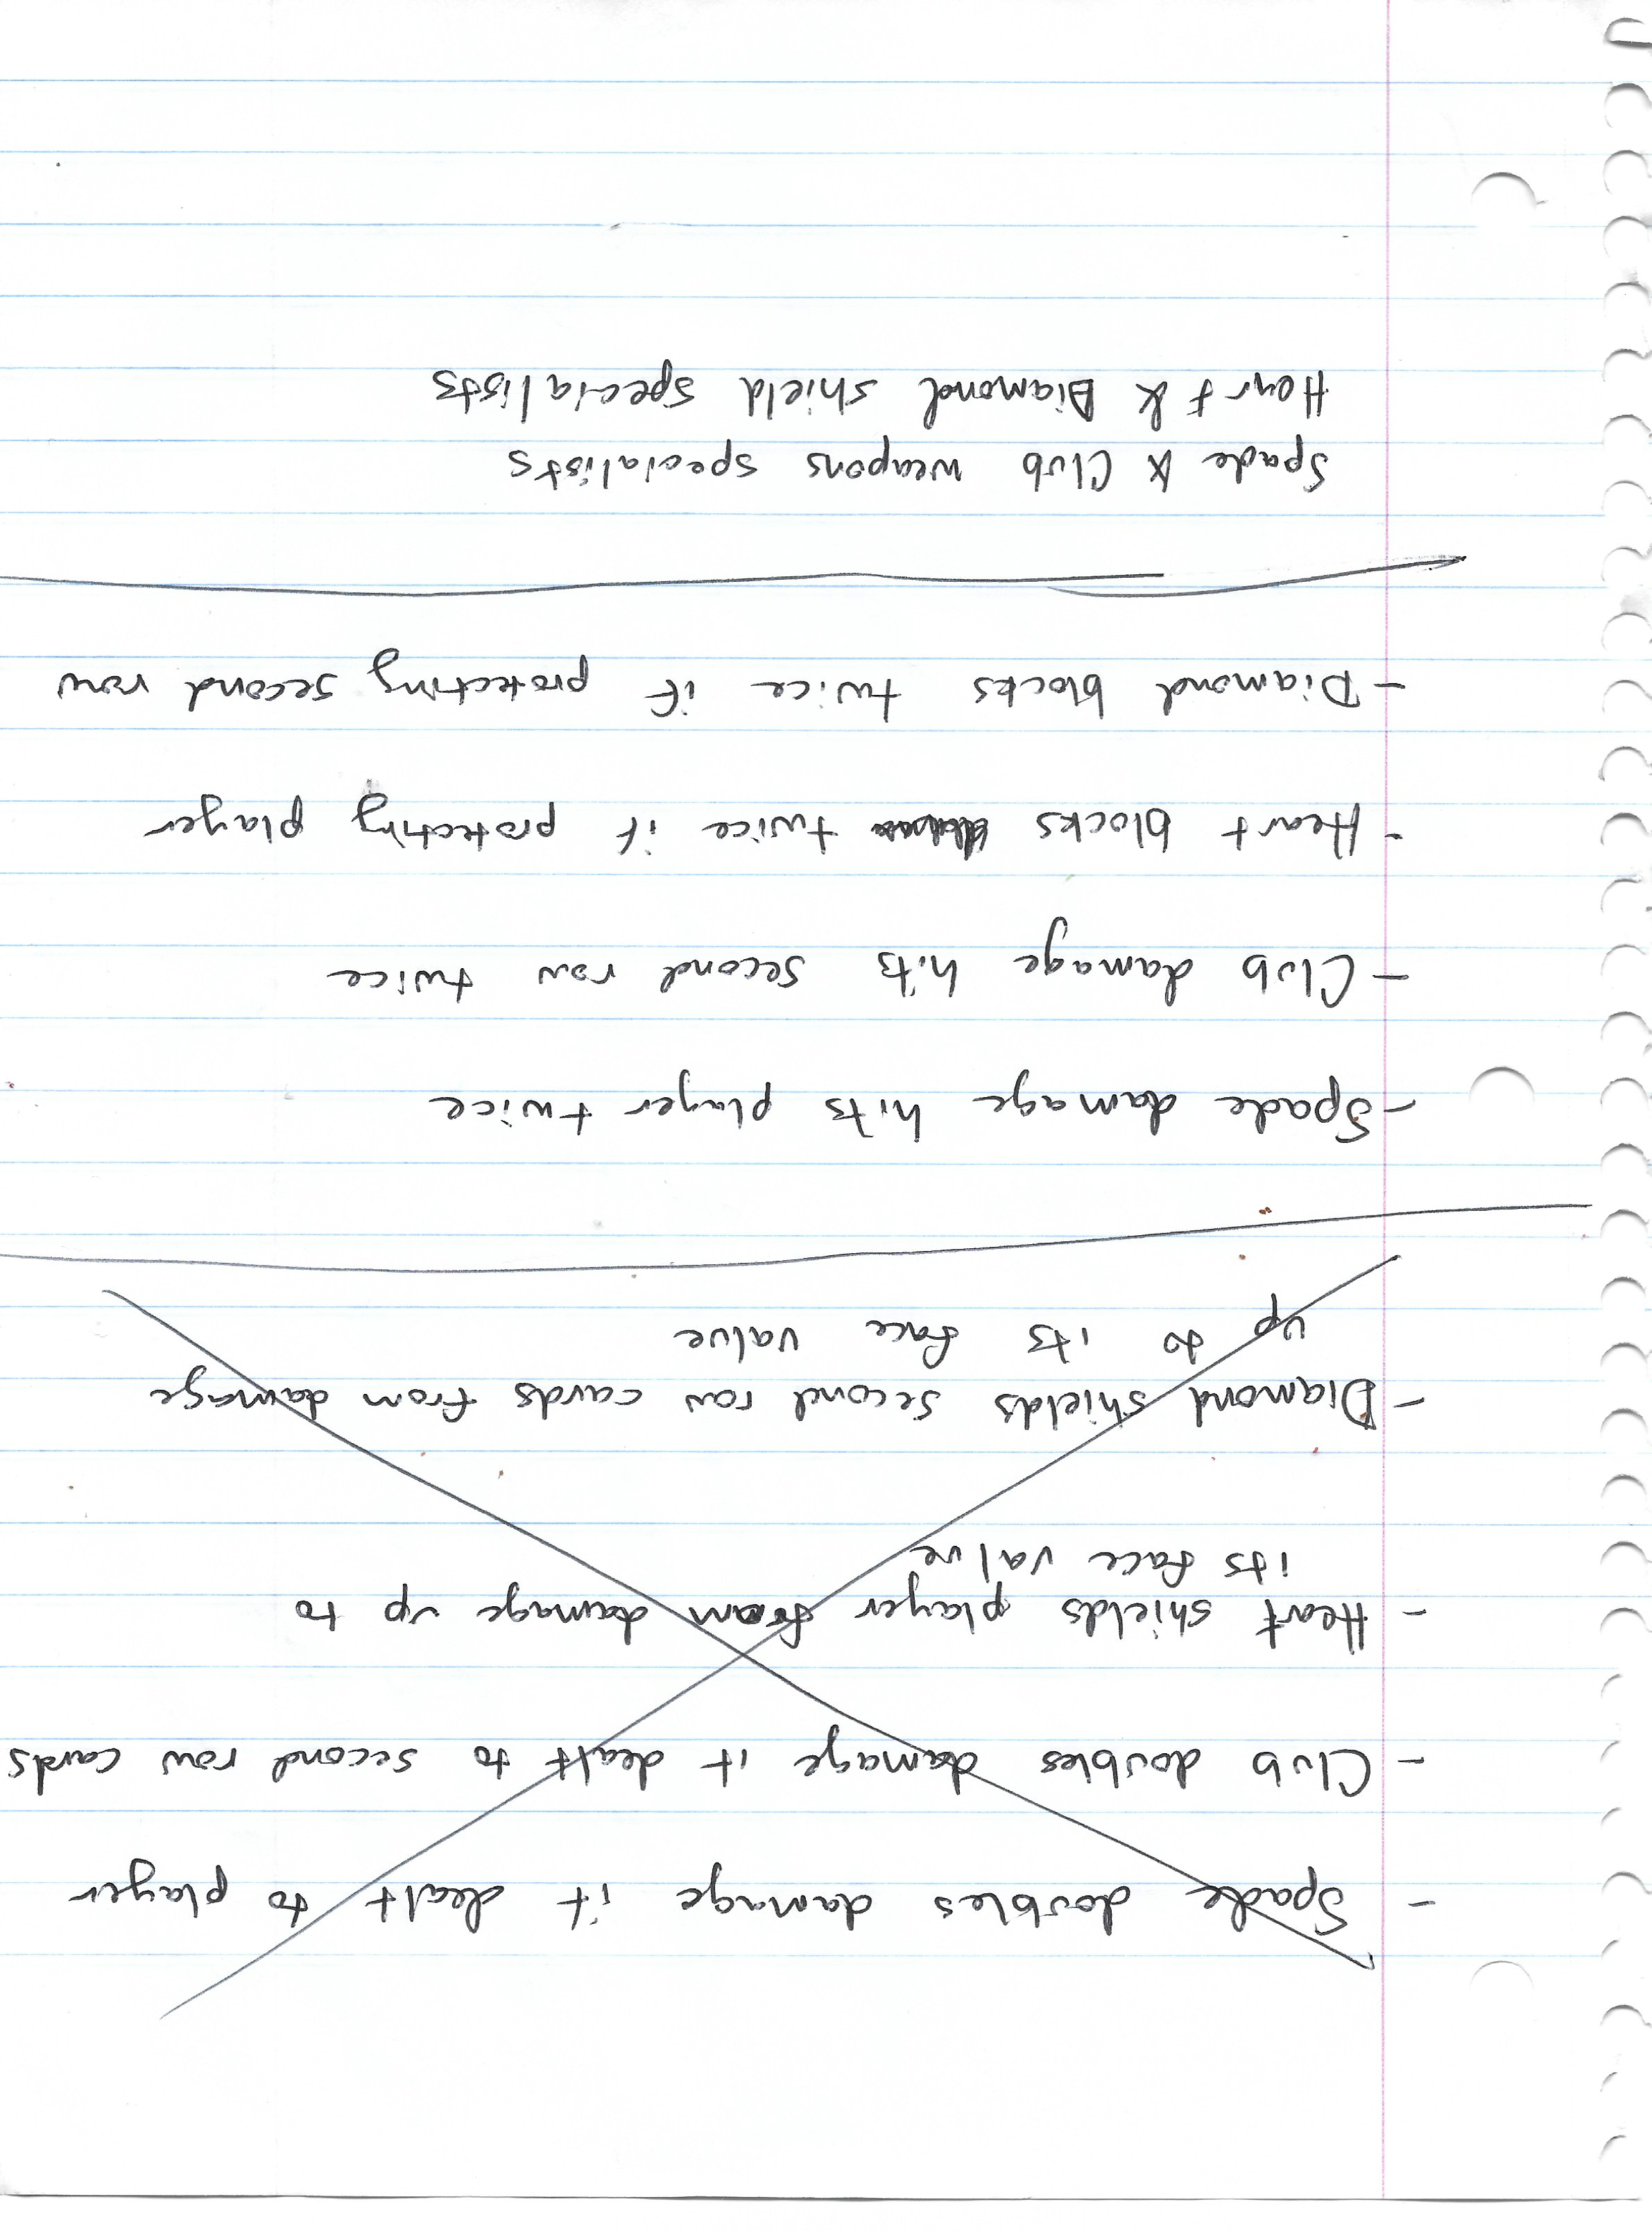 - Spade doubles damage it dealt to player
- Club doubles damage it dealt to second row cards
- Heart shields player from damage up to
its face value
- Diamond shields second row cards from damage
up to its face value
- Spade damage hits player twice
- Club damage hits second row twice
- Heart blocks twice if protecting player
- Diamond blocks twice if protecting second row
Spade & Club weapons specialists
Heart & Diamond shield specialists